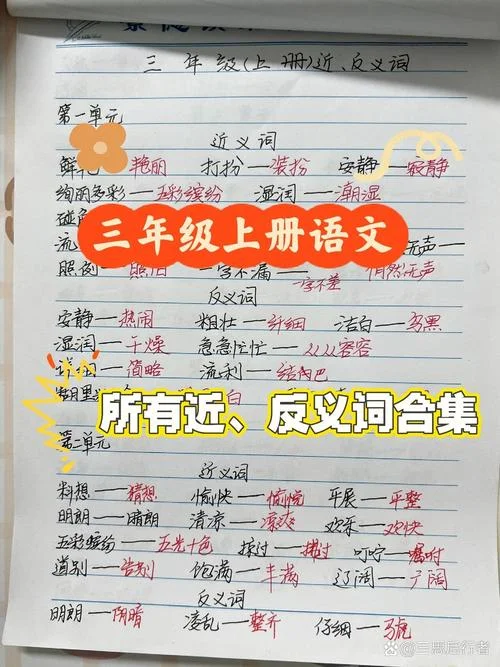 三年级(上册)近、反义词
第一单元
近义词
艳丽 打扮—装扮 安静—寂静
绚丽多彩—五彩缤纷 湿润—潮湿
流
三年级上册语文
无声—
照例—照旧 一字不漏—一字不差 悄然无声
反义词
安静—热闹 粗壮—纤细 洁白—乌黑
湿润—干燥 急急忙忙—从从容容
简略 流利—结结巴巴
糊里 白
所有近、反义词合集
第二单元
近义词
料想—猜想 愉快—愉悦 平展—平整
明朗—晴朗 清凉—凉爽 欢乐—欢快
五彩缤纷—五光十色 掠过—拂过 叮咛—嘱咐
道别—告别 饱满—丰满 辽阔—广阔
反义词
明朗—阴暗 凌乱—整齐 仔细—马虎
头条@三思后行者